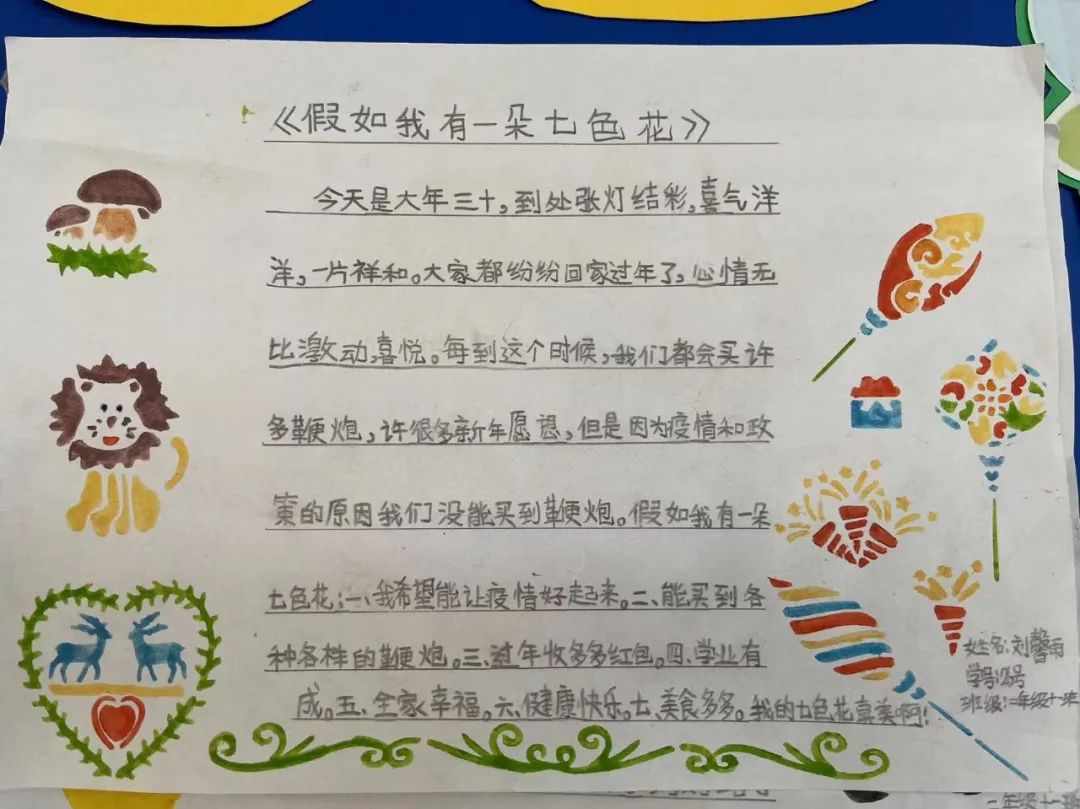 《假如我有一朵七色花》
今天是大年三十，到处张灯结彩，喜气洋
洋，一片祥和。大家都纷纷回家过年了，心情无
比激动，喜悦。每到这个时候，我们都会买许
多鞭炮，许很多新年愿望，但是因为疫情和政
策的原因我们没能买到鞭炮。假如我有一朵
七色花：一、我希望能让疫情好起来。二、能买到各
种各样的鞭炮。三、过年收多多红包。四、学业有
成。五、全家幸福。六、健康快乐。七、美食多多。我的七色花真美啊！
姓名：刘馨雨
学号：号
班级：二年级十班